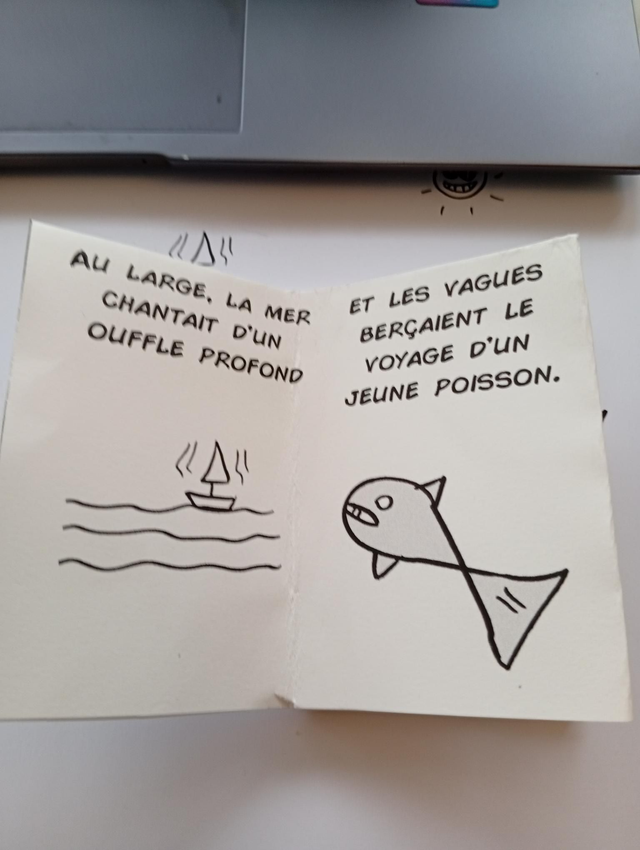 AU LARGE, LA MER
CHANTAIT D'UN
OUFFLE PROFOND
ET LES VAGUES
BERÇAIENT LE
VOYAGE D'UN
JEUNE POISSON.